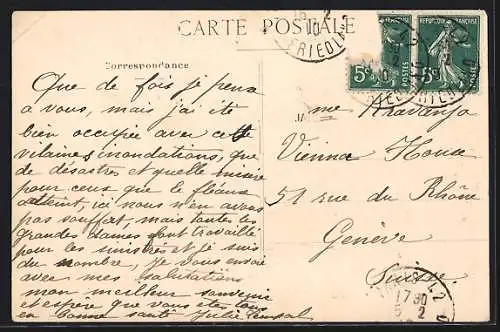 CARTE POSTALE
FRIEDLAND
10
2
RÉPUBLIQUE FRANÇAISE
5c
POSTES
5c
Correspondance
Que de fois je pense
a vous, mais j'ai été
bien occupée avec cette
vilaines inondations, que
de désastres et quelle misère
pour ceux que le fléau
atteint, ici nous n'en avons
pas souffert, mais toutes les
grandes dames font travaillé
pour les sinistrés et je suis
du nombre, je vous envoie
avec mes salutations
mon meilleur souvenir
et espère que vous êtes tous
en bonne santé Julie
me Kravanja
Vienna House
51 rue du Rhône
Genève
Suisse
17 30
2